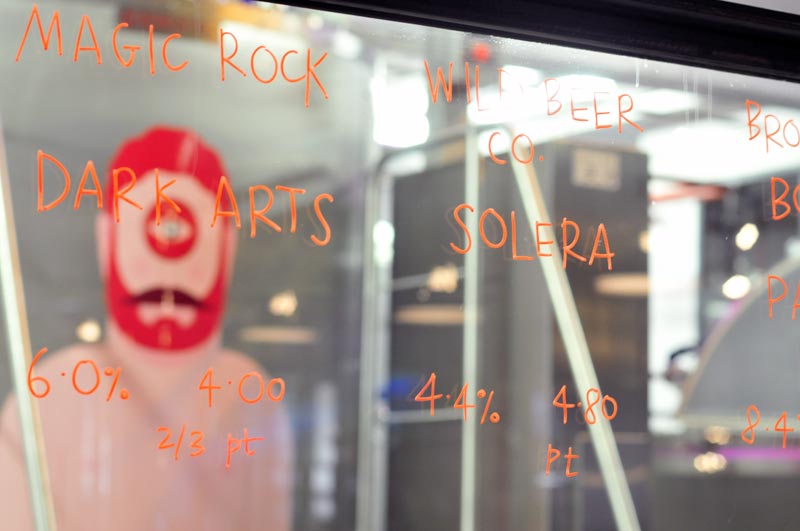 MAGIC ROCK
DARK ARTS
6.0% 4.00
2/3 pt
WILD BEER
CO.
SOLERA
4.4% 4.80
pt
BRO
BO
PA
8.4%